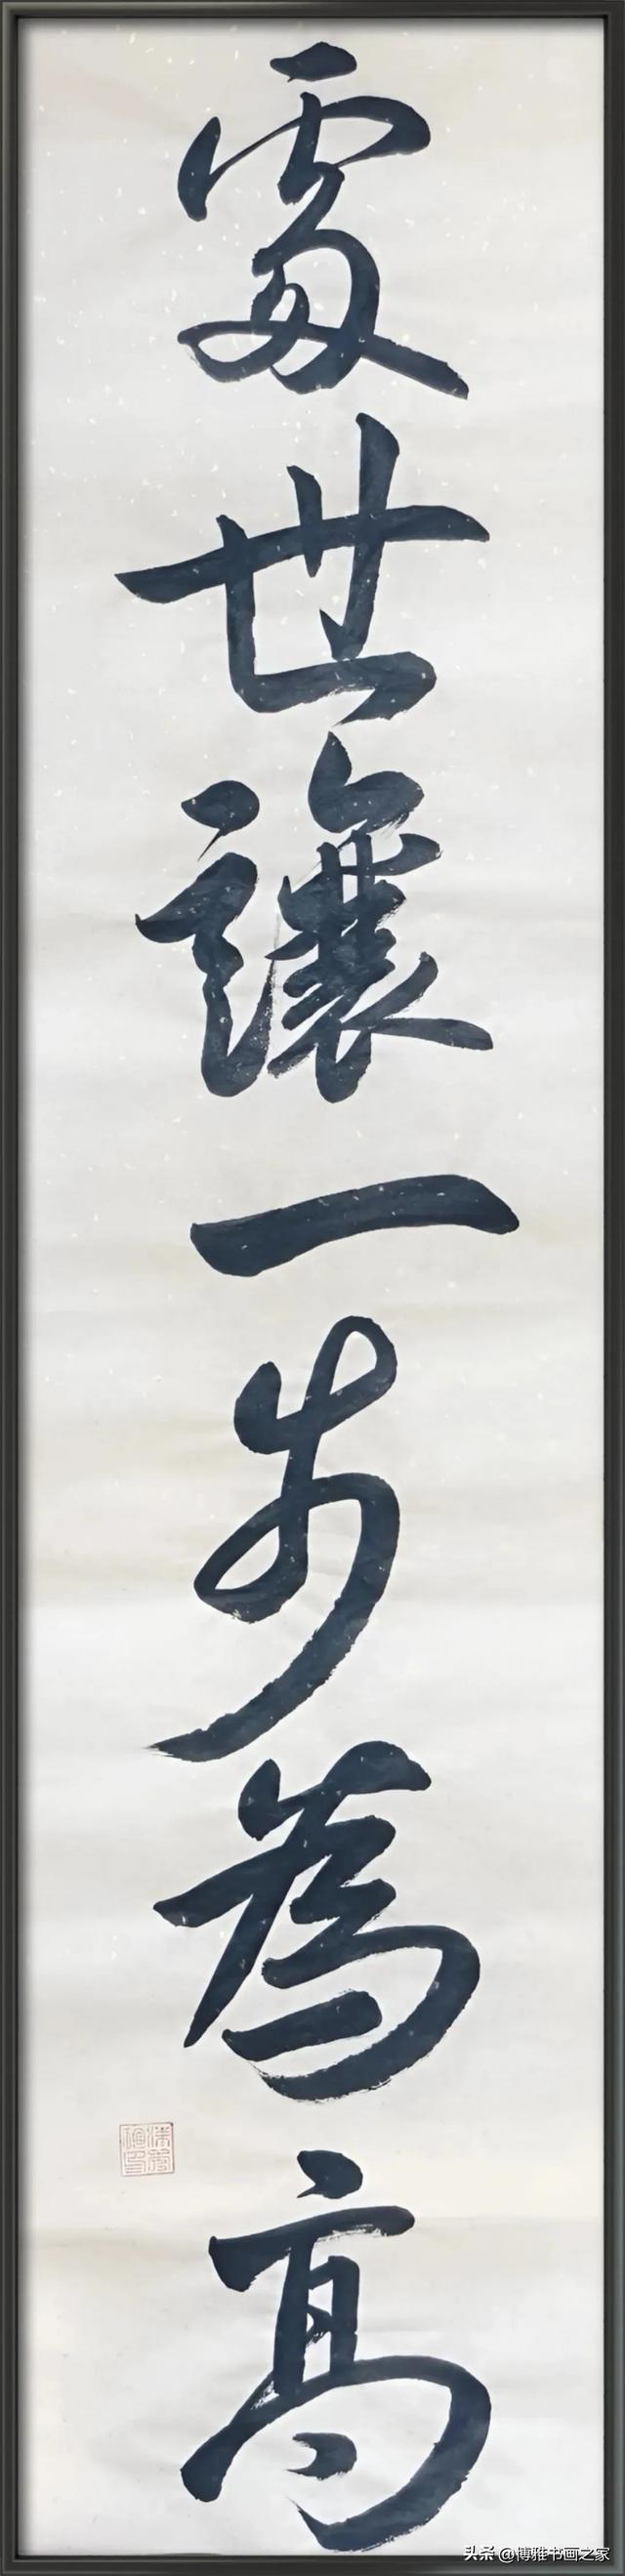 處世讓一步為高
头条 @博雅书画之家